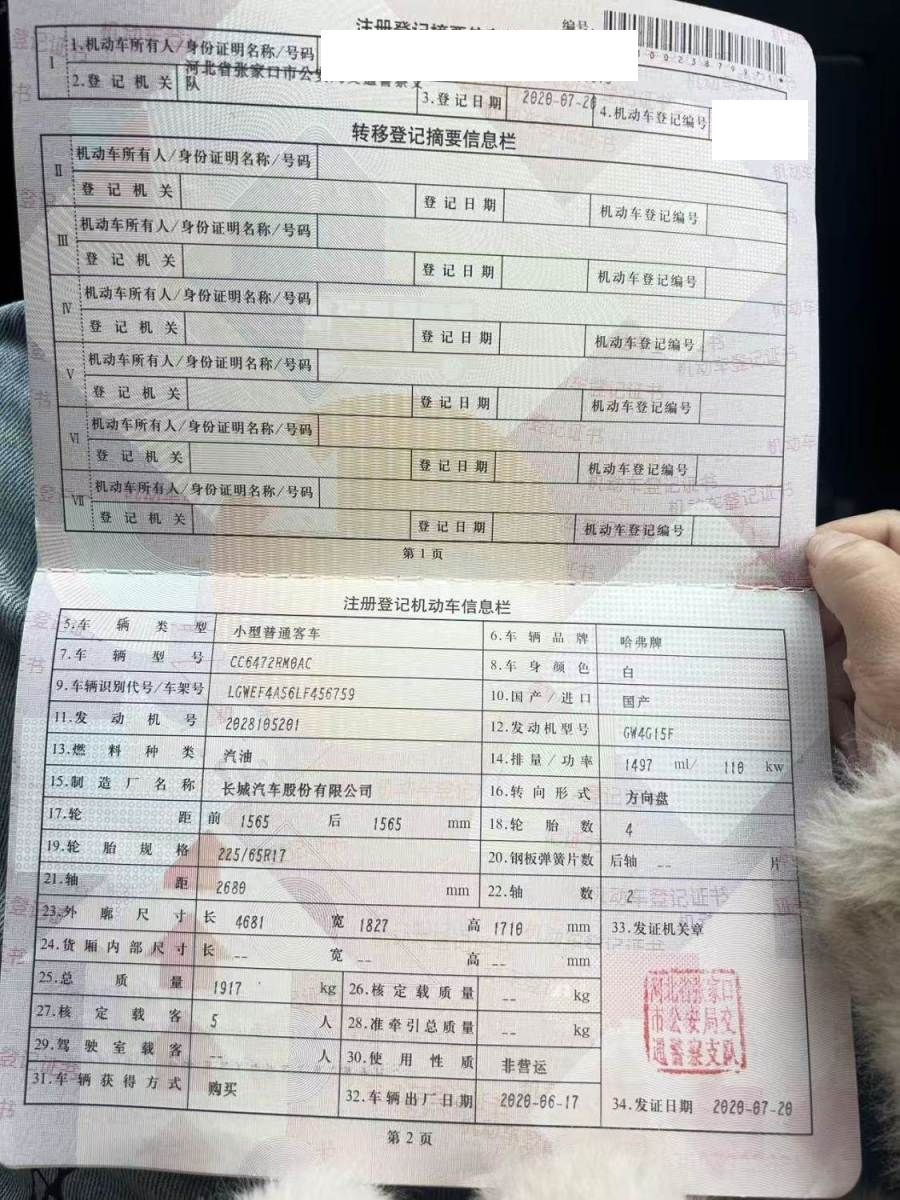 注册登记摘要信息栏
编号
Ⅰ 1.机动车所有人/身份证明名称/号码
2.登记机关 河北省张家口市公安局交通警察支队 3.登记日期 2020-07-20 4.机动车登记编号
转移登记摘要信息栏
Ⅱ 机动车所有人/身份证明名称/号码
登记机关 登记日期 机动车登记编号
Ⅲ 机动车所有人/身份证明名称/号码
登记机关 登记日期 机动车登记编号
Ⅳ 机动车所有人/身份证明名称/号码
登记机关 登记日期 机动车登记编号
Ⅴ 机动车所有人/身份证明名称/号码
登记机关 登记日期 机动车登记编号
Ⅵ 机动车所有人/身份证明名称/号码
登记机关 登记日期 机动车登记编号
Ⅶ 机动车所有人/身份证明名称/号码
登记机关 登记日期 机动车登记编号
第1页
注册登记机动车信息栏
5.车辆类型 小型普通客车 6.车辆品牌 哈弗牌
7.车辆型号 CC6472RM0AC 8.车身颜色 白
9.车辆识别代号/车架号 LGWEF4A56LF456759 10.国产/进口 国产
11.发动机号 2028105201 12.发动机型号 GW4G15F
13.燃料种类 汽油 14.排量/功率 1497 ml/ 110 kw
15.制造厂名称 长城汽车股份有限公司 16.转向形式 方向盘
17.轮距 前 1565 后 1565 mm 18.轮胎数 4
19.轮胎规格 225/65R17 20.钢板弹簧片数 后轴 -- 片
21.轴距 2680 mm 22.轴数 2
23.外廓尺寸 长 4681 宽 1827 高 1710 mm 33.发证机关章
24.货厢内部尺寸 长 -- 宽 -- 高 -- mm
25.总质量 1917 kg 26.核定载质量 -- kg
27.核定载客 5 人 28.准牵引总质量 -- kg
河北省张家口
市公安局交
通警察支队
29.驾驶室载客 -- 人 30.使用性质 非营运
31.车辆获得方式 购买 32.车辆出厂日期 2020-06-17 34.发证日期 2020-07-20
第2页